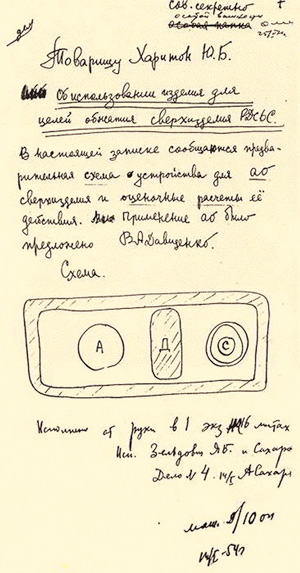 Сов. секретно
особой важности
Особая папка
Товарищу Харитон Ю.Б.
Об использовании изделия для
целей обжатия сверхизделия РДС-6С.
В настоящей записке сообщаются предва-
рительная схема устройства для АО
сверхизделия и оценочные расчеты её
действия. Применение АО было
предложено В.А Давиденко.
Схема.
А Д С
Исполнено от руки в 1 экз на 6 листах
Исп. Зельдович ЯБ. и Сахаров
Дело № 4 14/I АСахаров
14/I-54г